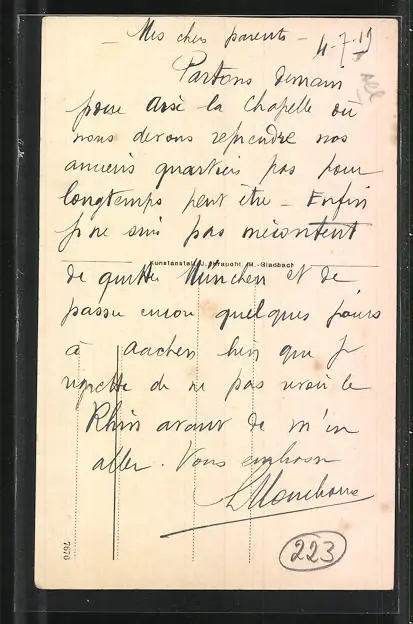 - Mes chers parents - 4-7-19
Partons demain
pour Aix la Chapelle où
nous devons reprendre nos
anciens quartiers pas pour
longtemps peut être - Enfin
je ne suis pas mécontent
Kunstanstalt M.-Gladbach
de quitter München et de
passer encore quelques jours
à Aachen bien que je
regrette de ne pas revoir le
Rhin avant de m'en
aller. Vous embrasse
223
7676